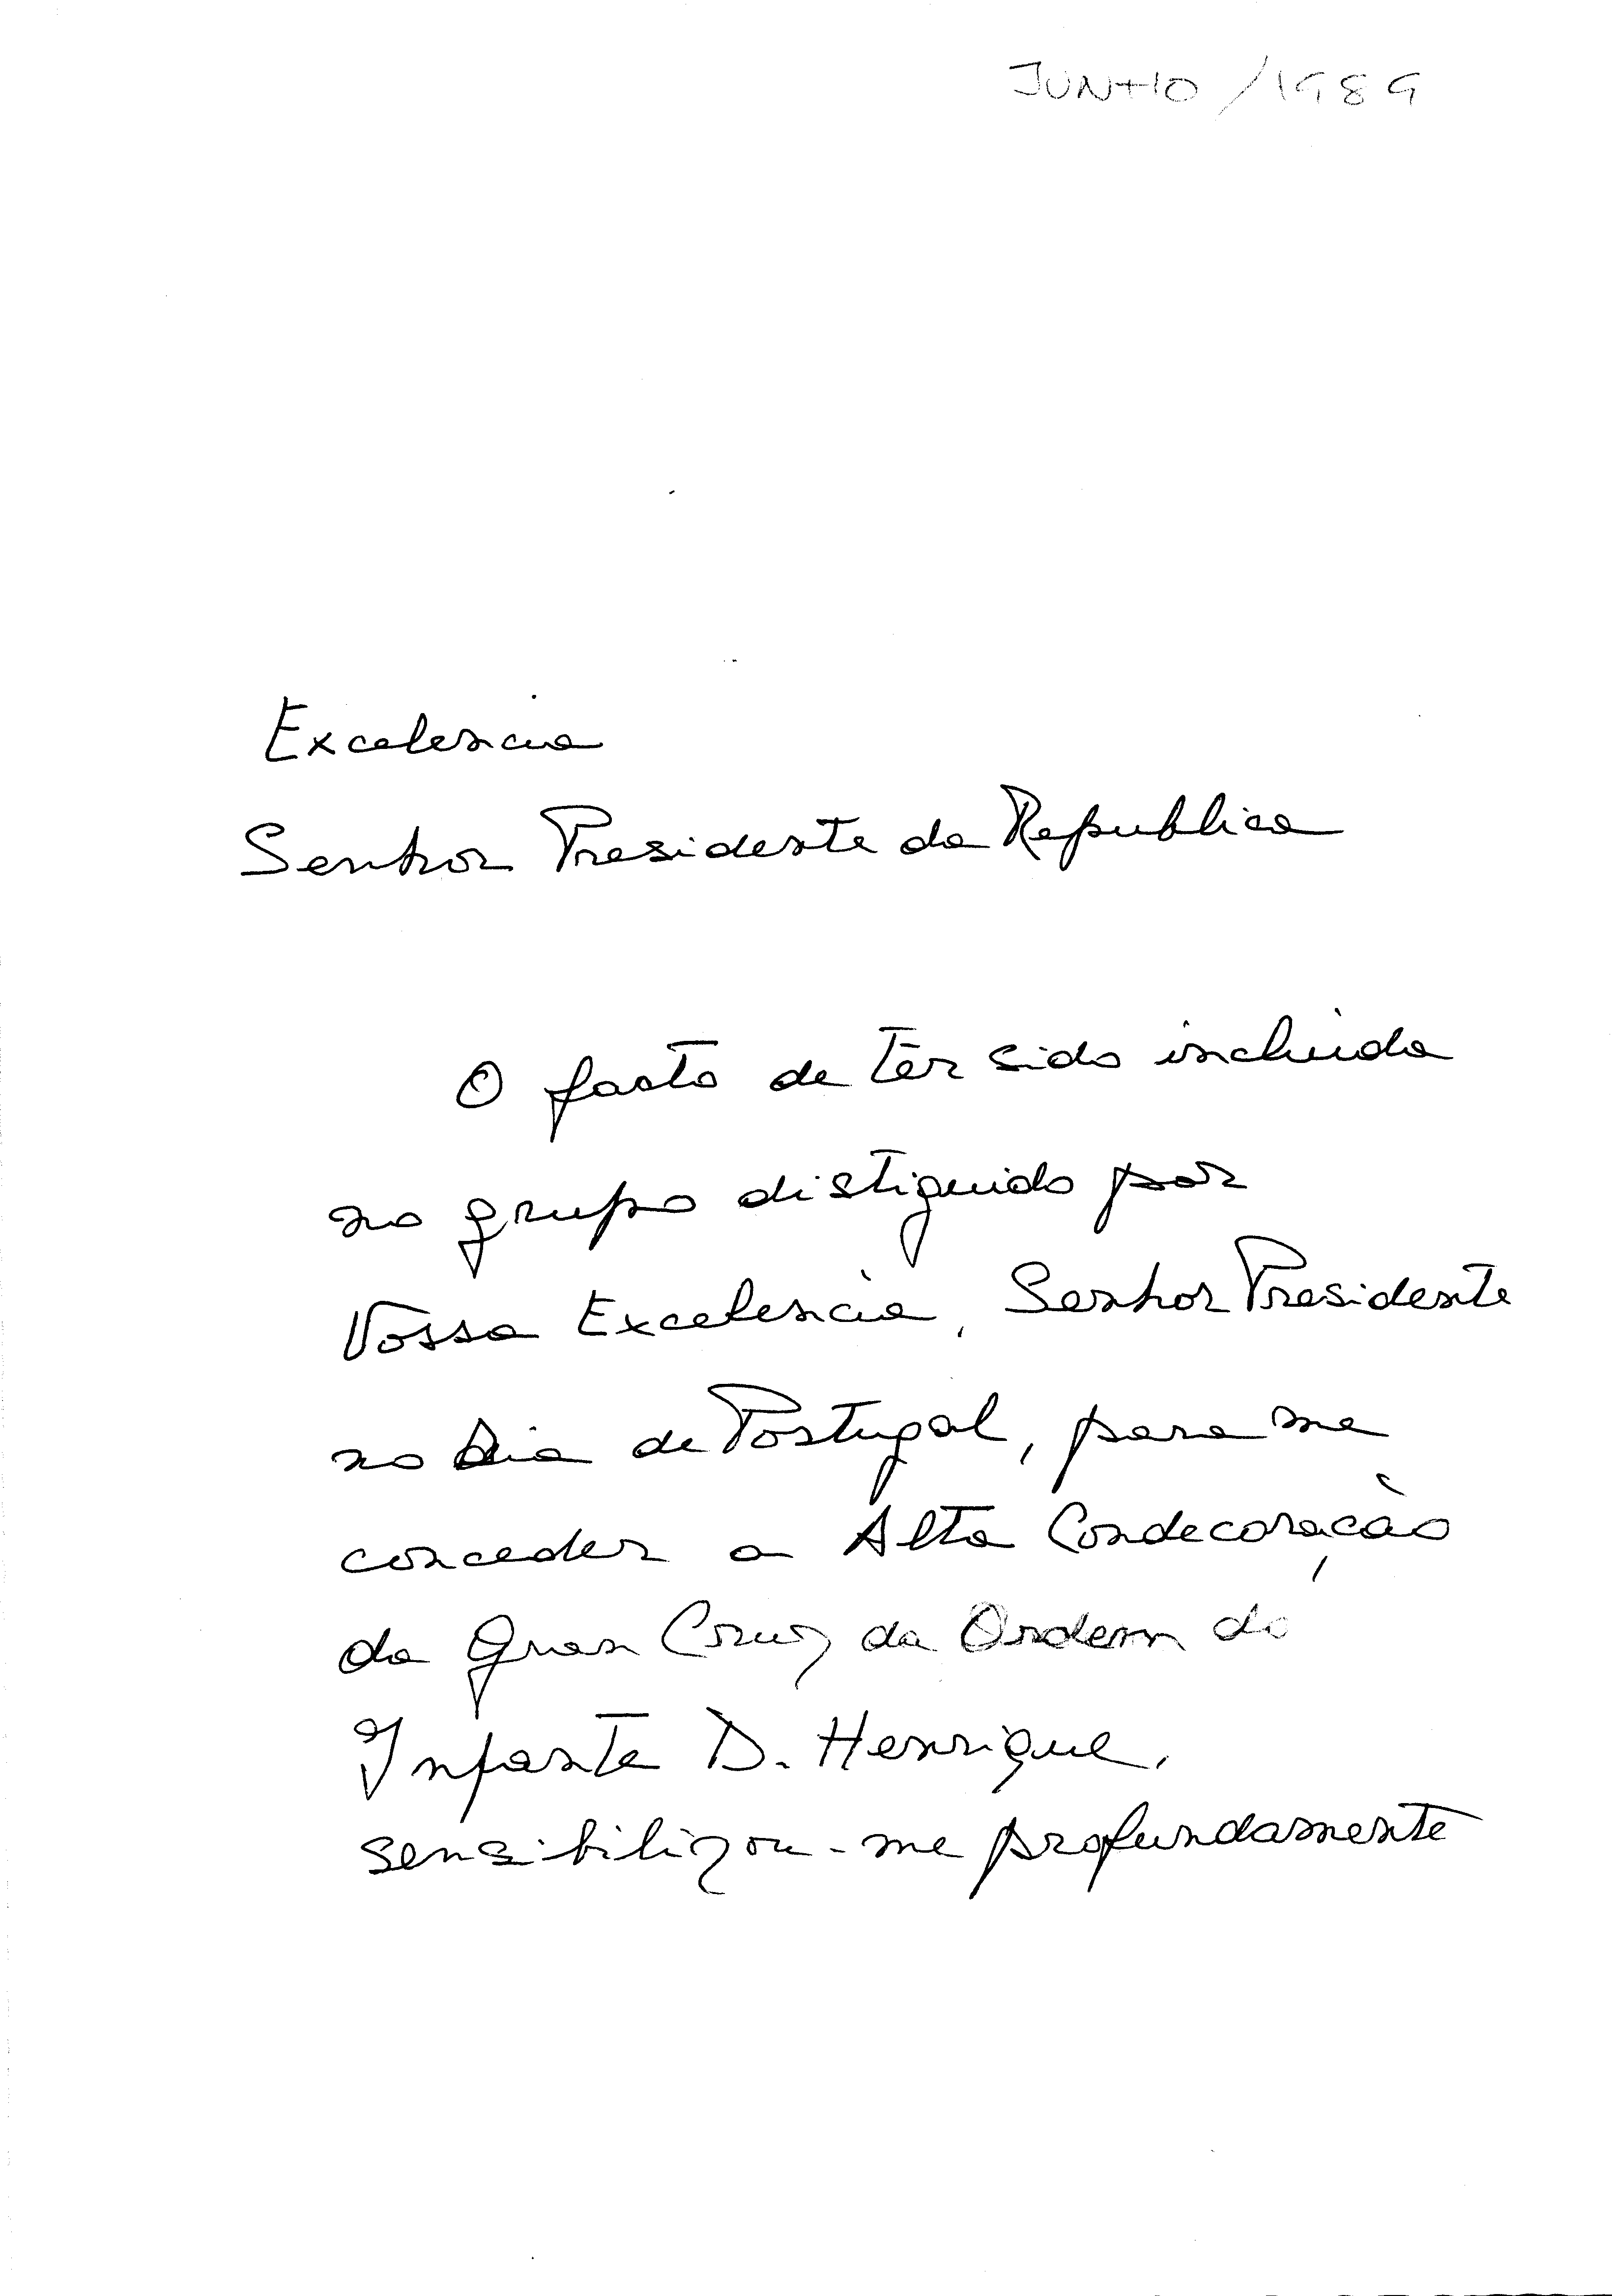 JUNHO / 1989
Excelencia
Senhor Presidente da Republica
O facto de têr sido incluida
no grupo distiguido por
Vossa Excelência, Senhor Presidente
no Dia de Portugal, para me
conceder a Alta Condecoração
da Gran Cruz da Ordem do
Infante D. Henrique,
sensibilizou-me profundamente